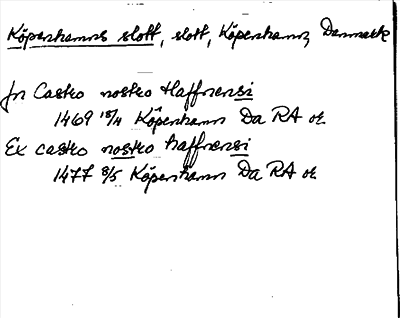 Köpenhamns slott, slott, Köpenhamn, Danmark
In Castro nostro Haffnensi
1469 18/4 Köpenhamn Da RA or.
Ex castro nostro haffnensi
1477 8/5 Köpenhamn Da RA or.